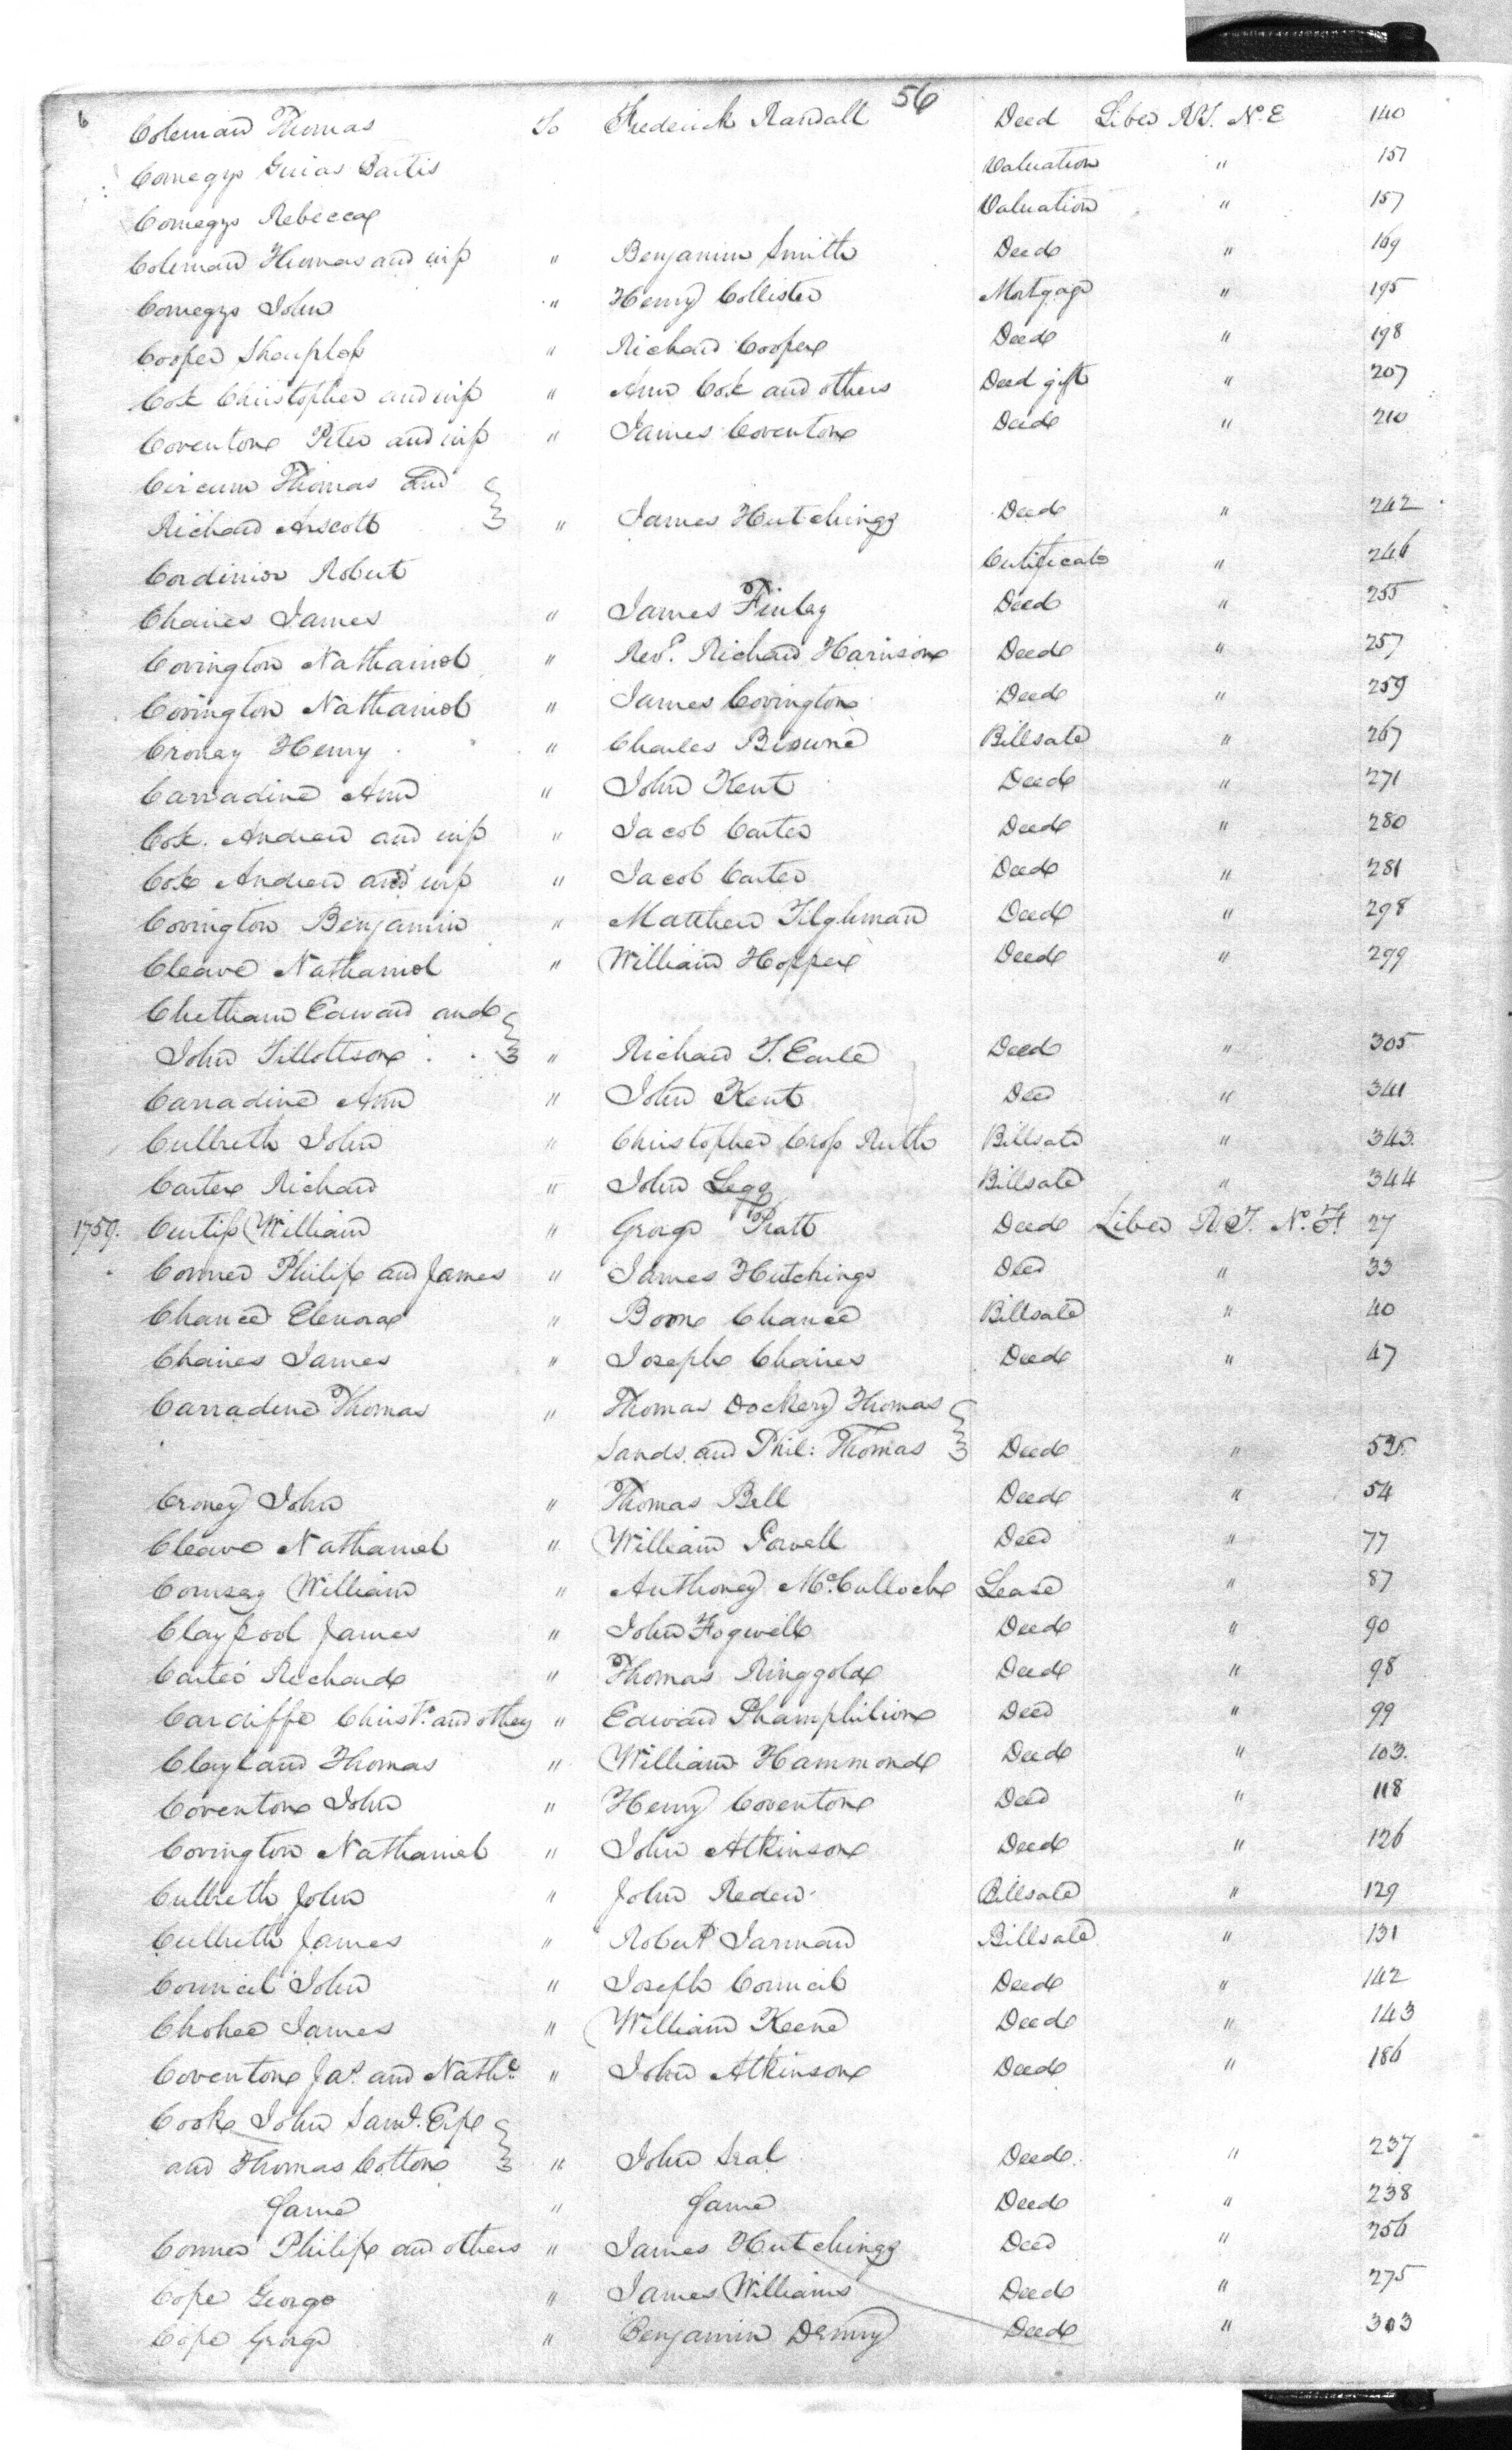 56
6 Coleman Thomas To Frederick Randall Deed Liber R.T. No. E 140
Comegys Guias Bartis Valuation " 157
Comegys Rebecca Valuation " 157
Coleman Thomas and wife " Benjamin Smith Deed " 169
Comegys John " Henry Collister Mortgage " 195
Cooper " Richard Cooper Deed " 198
Cox Christopher and wife " Ann Cox and others Deed gift " 207
Coventon Peter and wife " James Coventon Deed " 210
Circum Thomas and
Richard Anscott " James Hutchings Deed " 242
Cordinior Robert Certificate " 246
Chaires James " James Finley Deed " 255
Covington Nathaniel " Revd. Richard Harrison Deed " 257
Covington Nathaniel " James Covington Deed " 259
Croney Henry " Charles Browne Billsale " 267
Carradine Ann " John Kent Deed " 271
Cox Andrew and wife " Jacob Carter Deed " 280
Cox Andrew and wife " Jacob Carter Deed " 281
Covington Benjamin " Matthew Tilghman Deed " 298
Cleave Nathaniel " William Hopper Deed " 299
Chetham Edward and
John Tillottson " Richard T. Earle Deed " 305
Carradine Ann " John Kent Deed " 341
Culbreth John " Christopher Cross Ruth Billsale " 343
Carter Richard " John Legg Billsale " 344
1759. Curtiss William " George Pratt Deed Liber R.T. No. F. 27
Conner Philip and James " James Hutchings Deed " 33
Chance Elenora " Boon Chance Billsale " 40
Chaires James " Joseph Chaires Deed " 47
Carradine Thomas " Thomas Dockery Thomas
Sands and Phil: Thomas Deed " 52
Croney John " Thomas Bell Deed " 54
Cleave Nathaniel " William Powell Deed " 77
Comsey William " Anthoney McCulloch Lease " 87
Claypool James " John Fogwell Deed " 90
Carter Richard " Thomas Ringgold Deed " 98
Carcliffe Christr. and others " Edward Phamphilion Deed " 99
Clayland Thomas " William Hammond Deed " 103.
Coventon John " Henry Coventon Deed " 118
Covington Nathaniel " John Atkinson Deed " 126
Culbreth John " John Reder Billsale " 129
Culbreth James " Robert Jarman Billsale " 131
Council John " Joseph Council Deed " 142
Chohee James " William Keene Deed " 143
Coventon Jas. and Nathl. " John Atkinson Deed " 186
Cooke John Saml.
and Thomas Cotton " John Seal Deed " 237
Same " Same Deed " 238
Conner Philip and others " James Hutchings Deed " 256
Cope George " James Williams Deed " 275
Cope George " Benjamin Denny Deed " 303